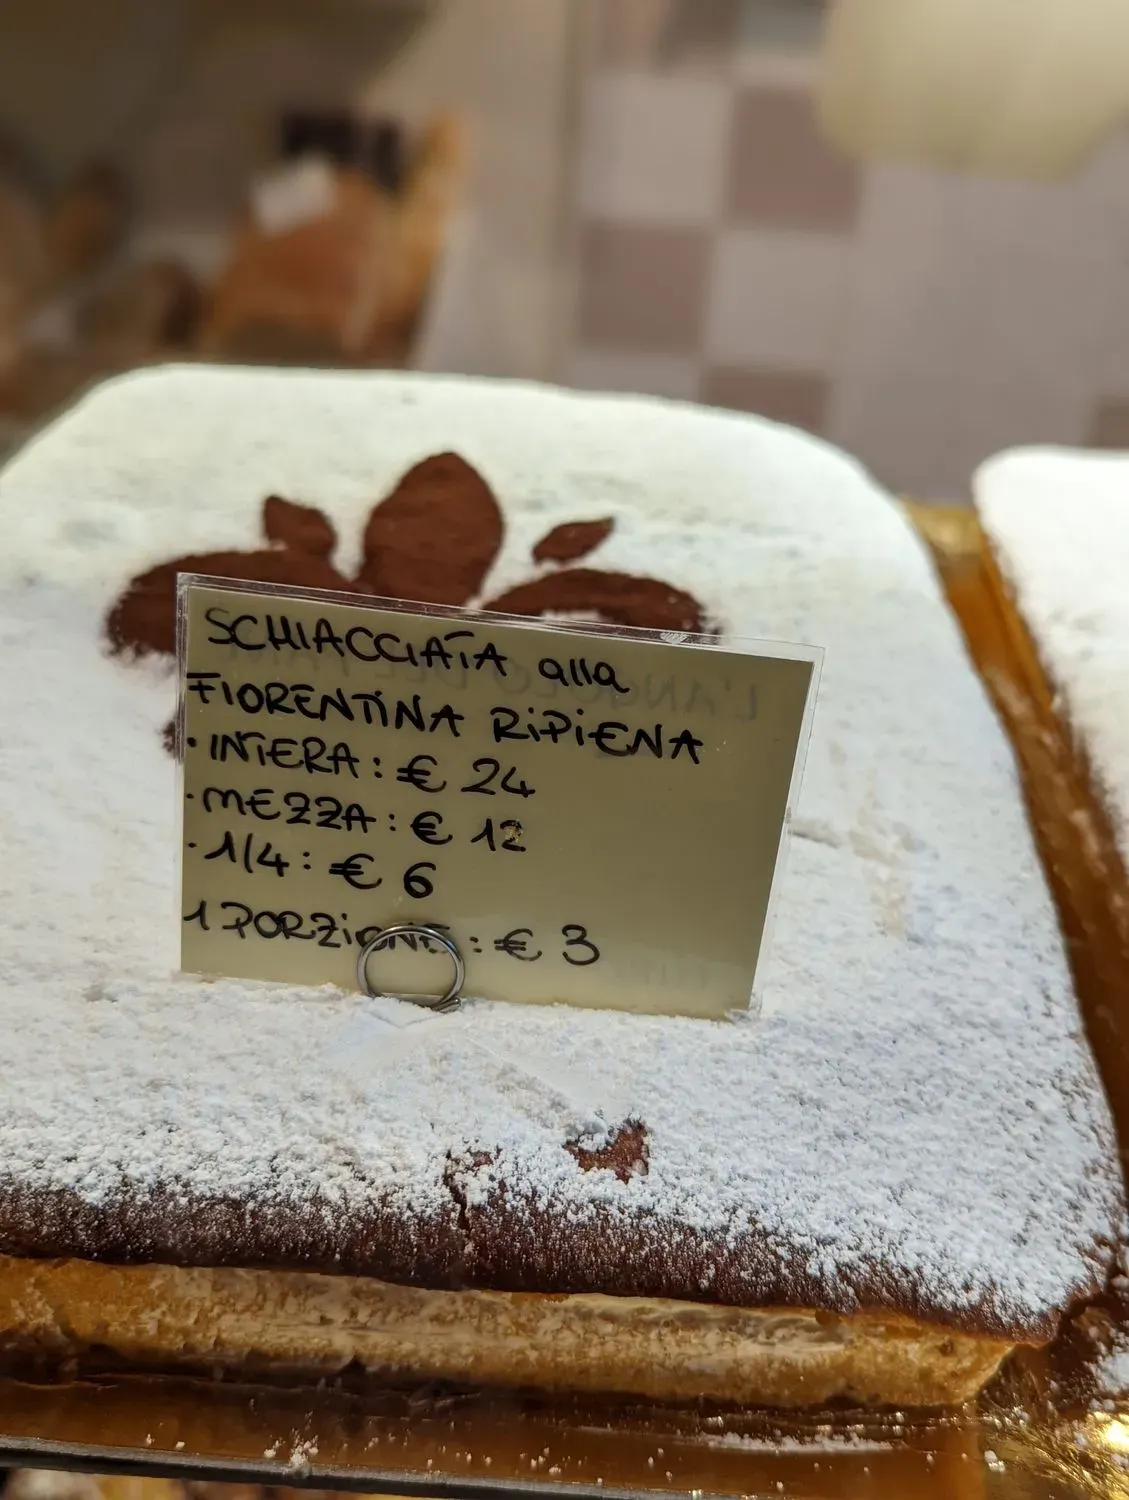 SCHIACCIATA alla
FIORENTINA RIPIENA
• INTERA: € 24
• MEZZA: € 12
• 1/4: € 6
1 PORZIONE: € 3